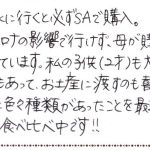 水に行くと必ずSAで購入。
ロナの影響で行けず、母が購
ています。私の子供(2才)も大
もあって、お土産に渡すのも喜
色々種類があったことを最
食べ比べ中です!!